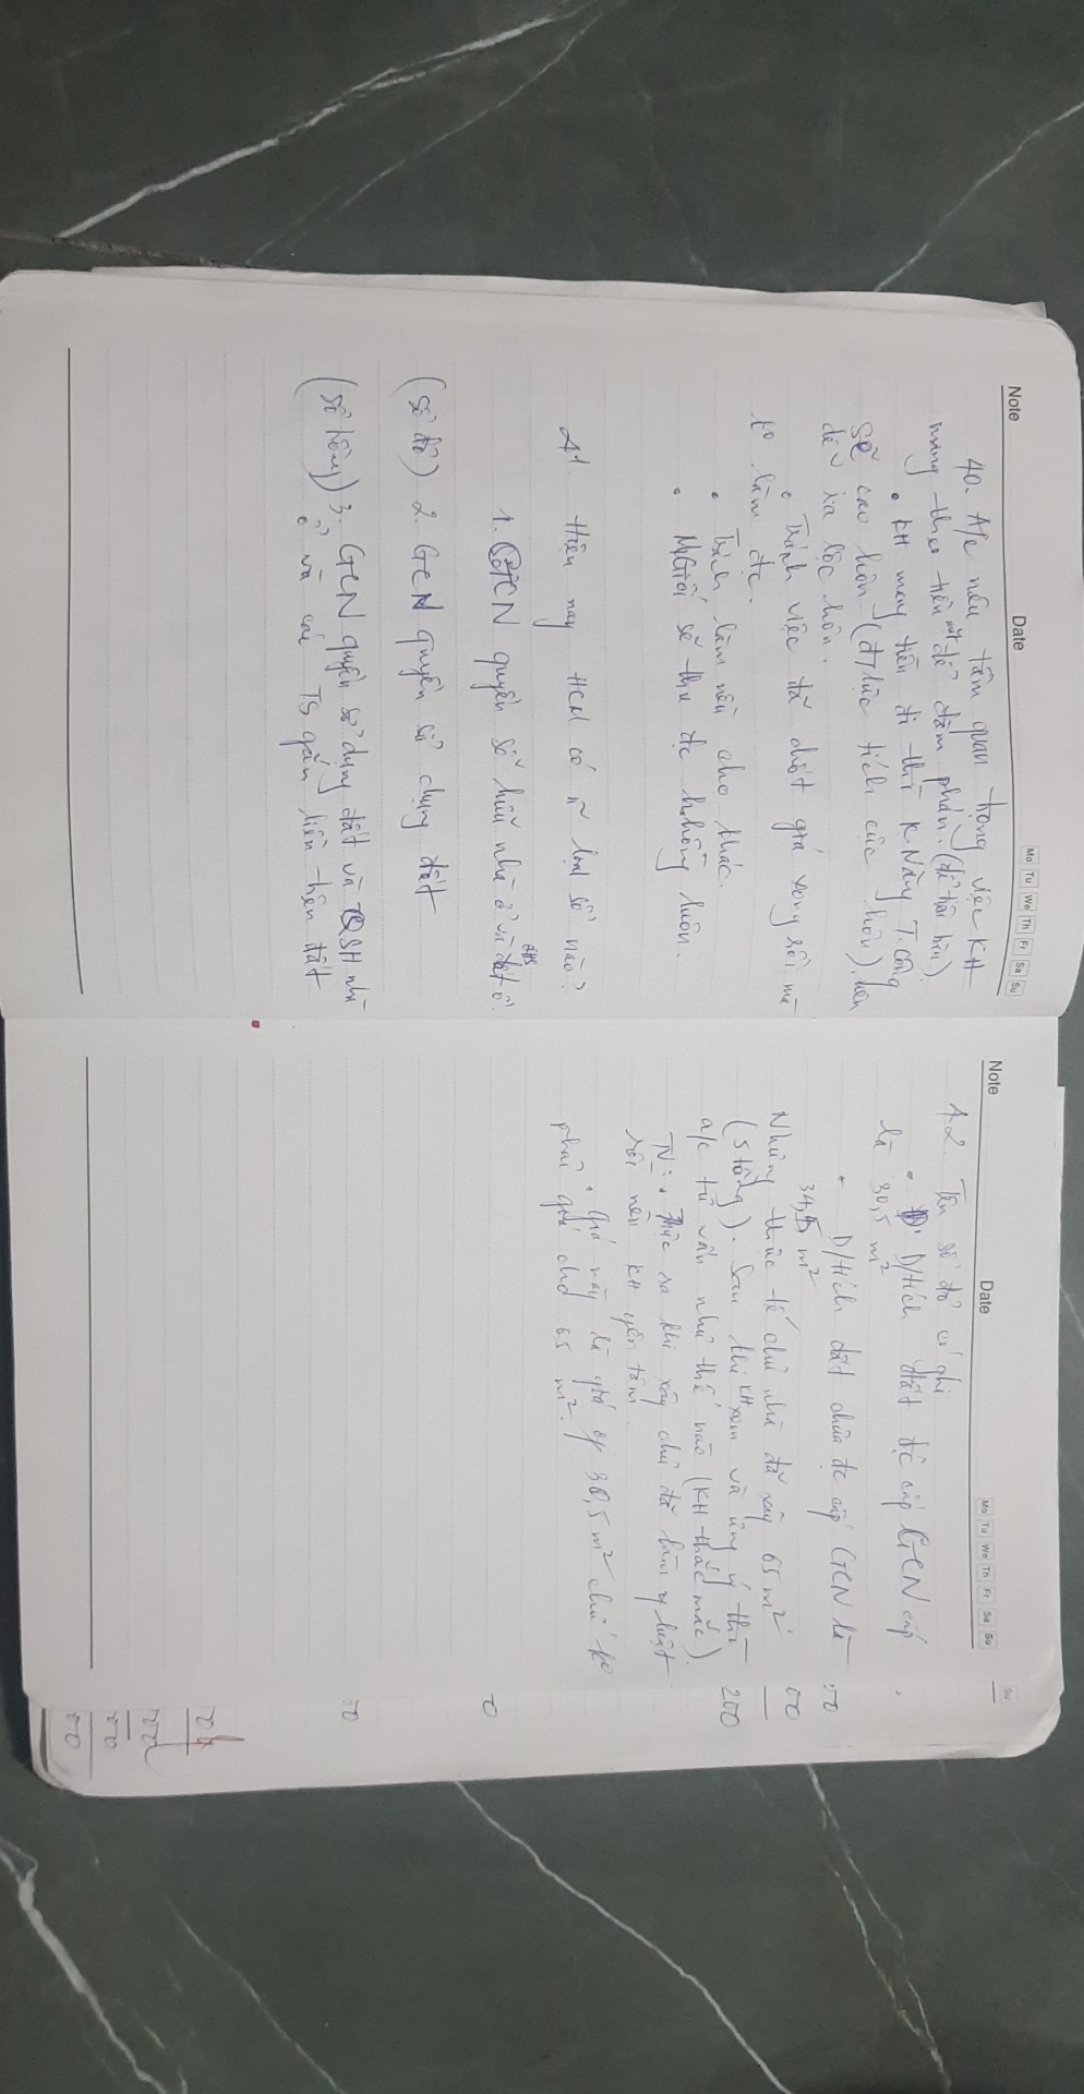 Note
Date
Mo Tu We Th Fr Sa Su
40. A/c nêu tầm quan trọng việc KH
mang theo tiền mặt để đàm phán.
• KH mang tiền đi thì K.Năng T.Công
sẽ cao hơn. (đ/lực tích cực hơn). nên
dễ ra lộc hơn.
• Tránh việc đã chốt giá xong rồi mà
ko làm đc.
• Tránh làm nền cho khác.
• MGiới sẽ thu đc h.hồng luôn.
41. Hiện nay HCM có n~ loại sổ nào?
1. GCN quyền sở hữu nhà ở và đất ở.
(sổ đỏ) 2. GCN quyền sử dụng đất
(sổ hồng) 3. GCN quyền sử dụng đất và QSH nhà
ở và các TS gắn liền trên đất
Note
Date
Mo Tu We Th Fr Sa Su
42. Trên sổ đỏ có ghi
• D/tích đất đc cấp GCN cấp
là 30,5 m²
• D/tích đất chưa đc cấp GCN là
34,5 m²
Nhưng thực tế chủ nhà đã xây 65 m²
(5 tầng). Sau khi KH xem và ưng ý thì
a/c tư vấn như thế nào (KH thắc mắc).
TV: • Thực ra khi xây chủ đã làm y luật
rồi nên KH yên tâm.
• Giá này là giá of 30,5 m² chứ ko
phải giá cho 65 m².
50
00
200
0